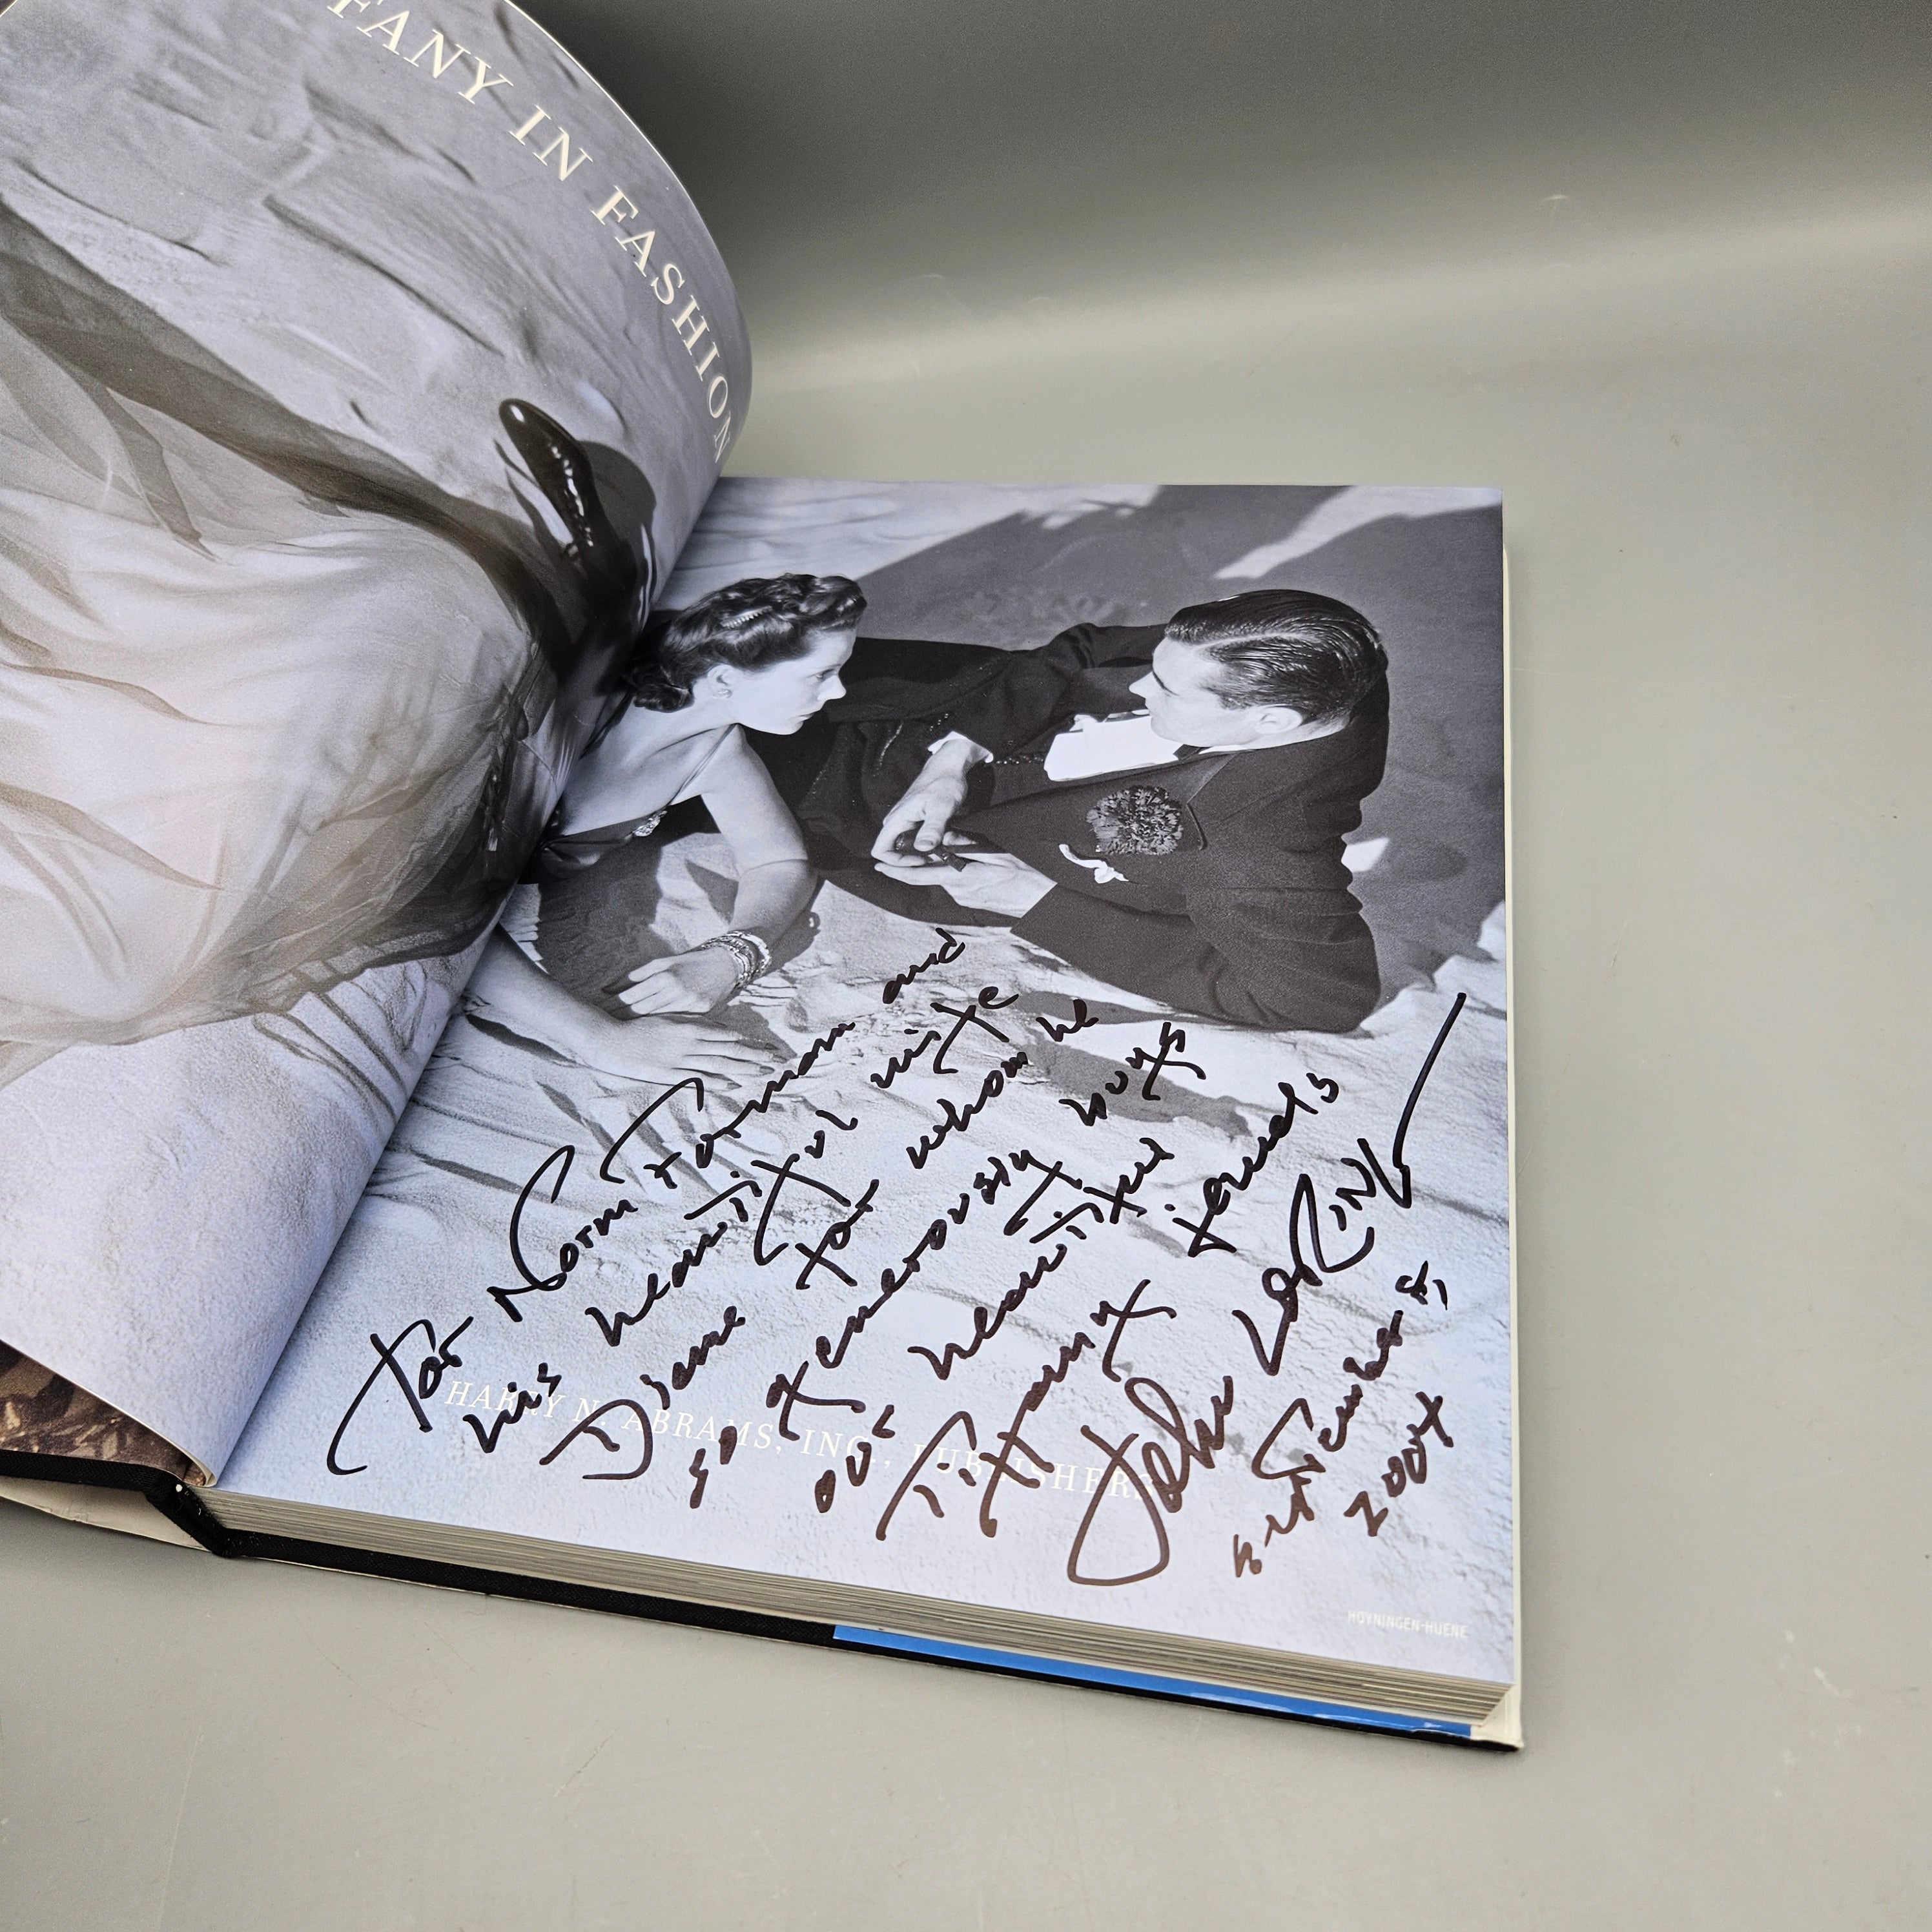 FANY IN FASHION
For Norm Forman and
his beautiful wife
Diane for whom he
so generously buys
our beautiful
Tiffany jewels
John LORING
September 8,
2004
HARRY N. ABRAMS, INC., PUBLISHERS
HOYNINGEN-HUENE